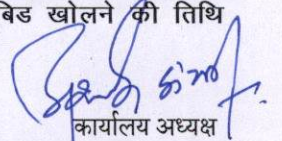 बिड खोलने की तिथि
कार्यालय अध्यक्ष